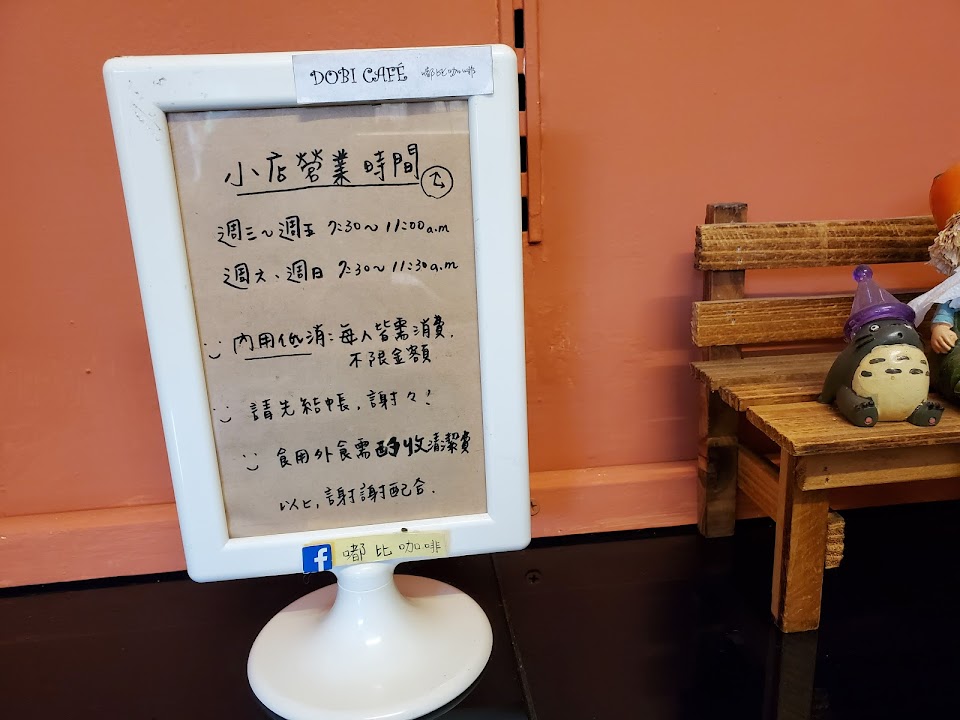 DOBI CAFÉ 嘟比咖啡
小店營業時間
週三~週五 7:30~11:00a.m
週六、週日 7:30~11:30a.m
內用低消:每人皆需消費,
不限金額
請先結帳,謝々!
食用外食需酌收清潔費
以上,謝謝配合.
嘟比咖啡